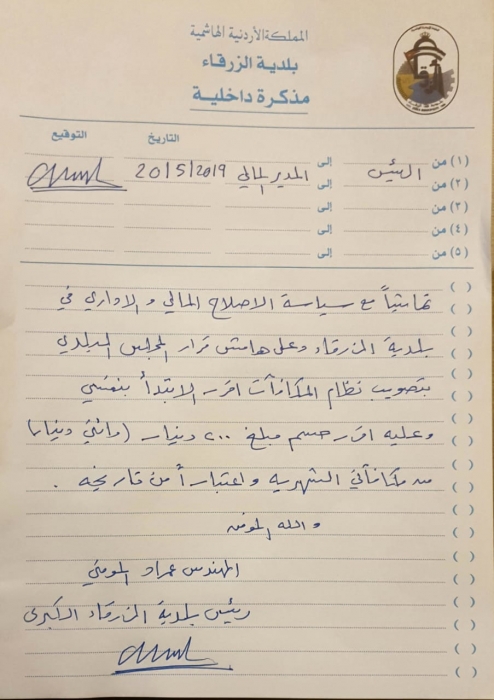 المملكة الأردنية الهاشمية
بلدية الزرقاء
مذكرة داخلية
التاريخ التوقيع
(١) من الرئيس إلى المدير المالي 20/5/2019
(٢) من إلى
(٣) من إلى
(٤) من إلى
(٥) من إلى
تماشياً مع سياسة الاصلاح المالي و الاداري في
بلدية الزرقاء وعلى هامش قرار المجلس البلدي
بتصويب نظام المكافآت اقرر الابتدأ بنفسي
وعليه اقرر حسم مبلغ ٢٠٠ دينار (مائتي دينار)
من مكافأتي الشهريه و اعتباراً من تاريخه .
و الله الموفق
المهندس عماد المومني
رئيس بلدية الزرقاء الكبرى